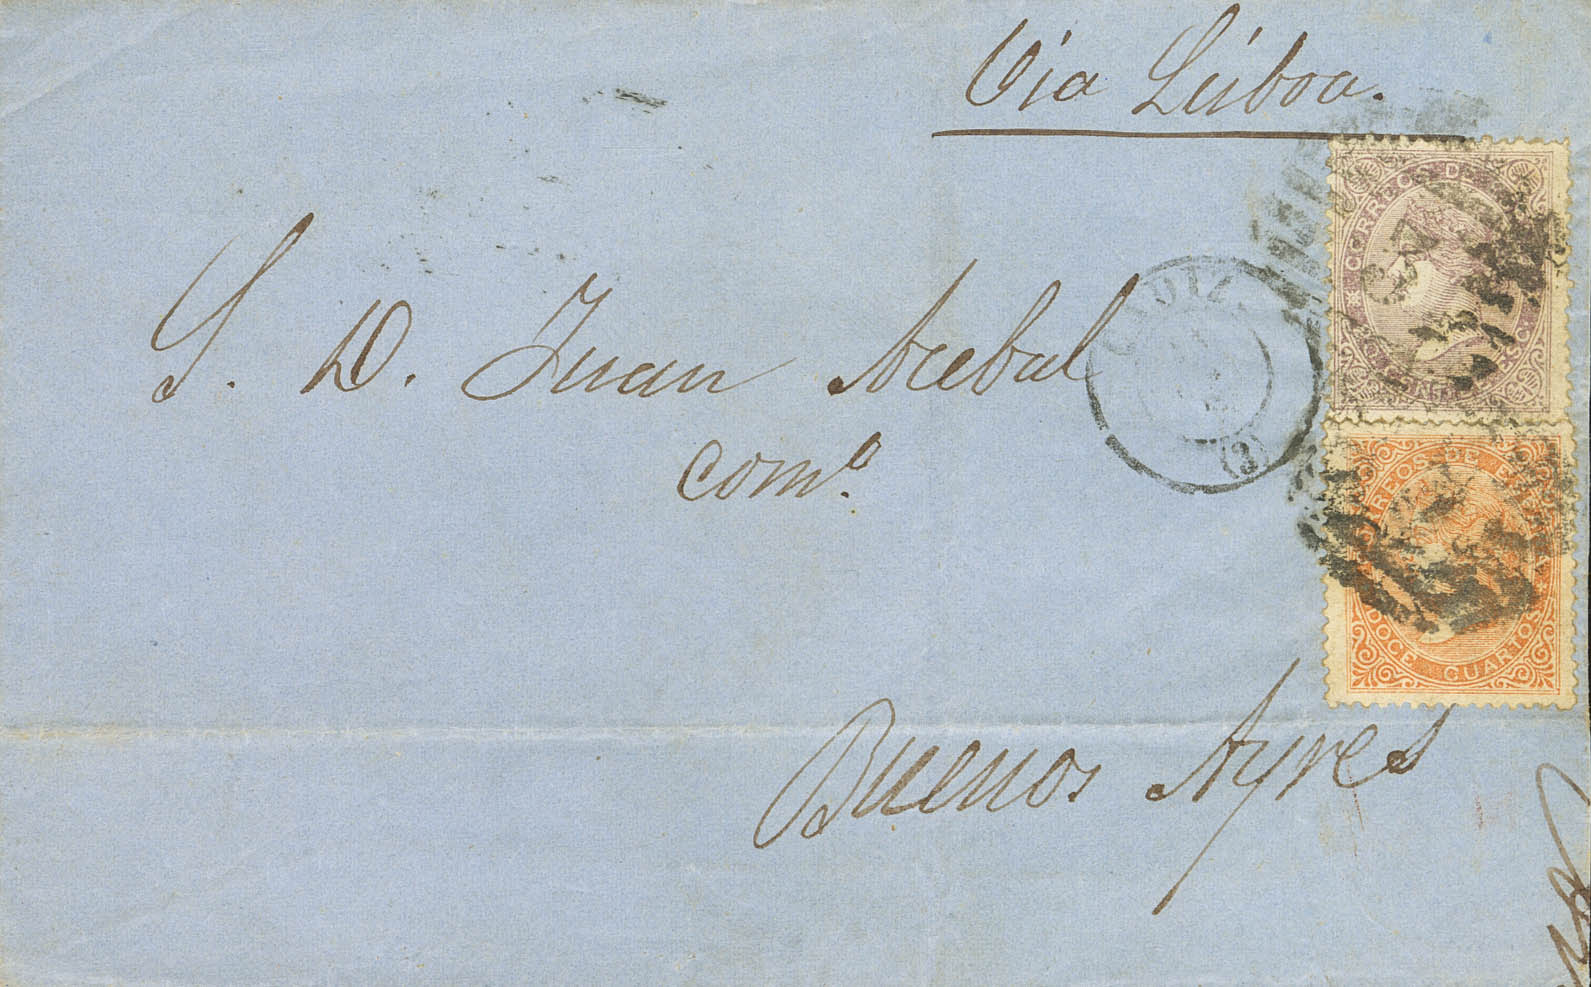 Via Lisboa.
S. D. Juan Acebal
com.º
Buenos Ayres
CADIZ.
(3)
CORREOS DE
CORREOS DE ESPAÑA
DOCE CUARTOS